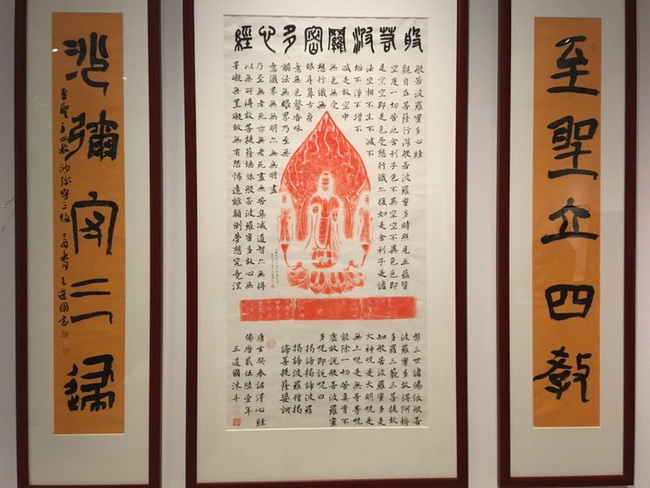 至聖立四教
般若波羅密多心經
般若波羅蜜多心經
觀自在菩薩行深般若波羅蜜多時照見五蘊皆
空度一切苦厄舍利子色不異空空不異色色即
是空空即是色受想行識亦復如是舍利子是諸
法空相不生不滅不
垢不淨不增不
減是故空中
無色無受
想行識無
眼耳鼻舌身
意無色聲香味
觸法無眼界乃至無
意識界無無明亦無無明盡
乃至無老死亦無老死盡無苦集滅道智亦無得
以無所得故菩提薩埵依般若波羅蜜多故心無
罣礙無罣礙故無有恐怖遠離顛倒夢想究竟涅
槃三世諸佛依般若
波羅蜜多故得阿耨
多羅三藐三菩提故
知般若波羅蜜多是
大神咒是大明咒是
無上咒是無等等咒
能除一切苦真實不
虛故說般若波羅蜜
多咒即說咒曰
揭諦揭諦波羅
揭諦波羅僧揭
諦菩提薩婆訶
唐玄奘奉詔譯心經
佛曆貳伍陸壹年
王道國沐手
沙彌守三歸
至聖立四教沙彌守三歸丁酉春王道國書